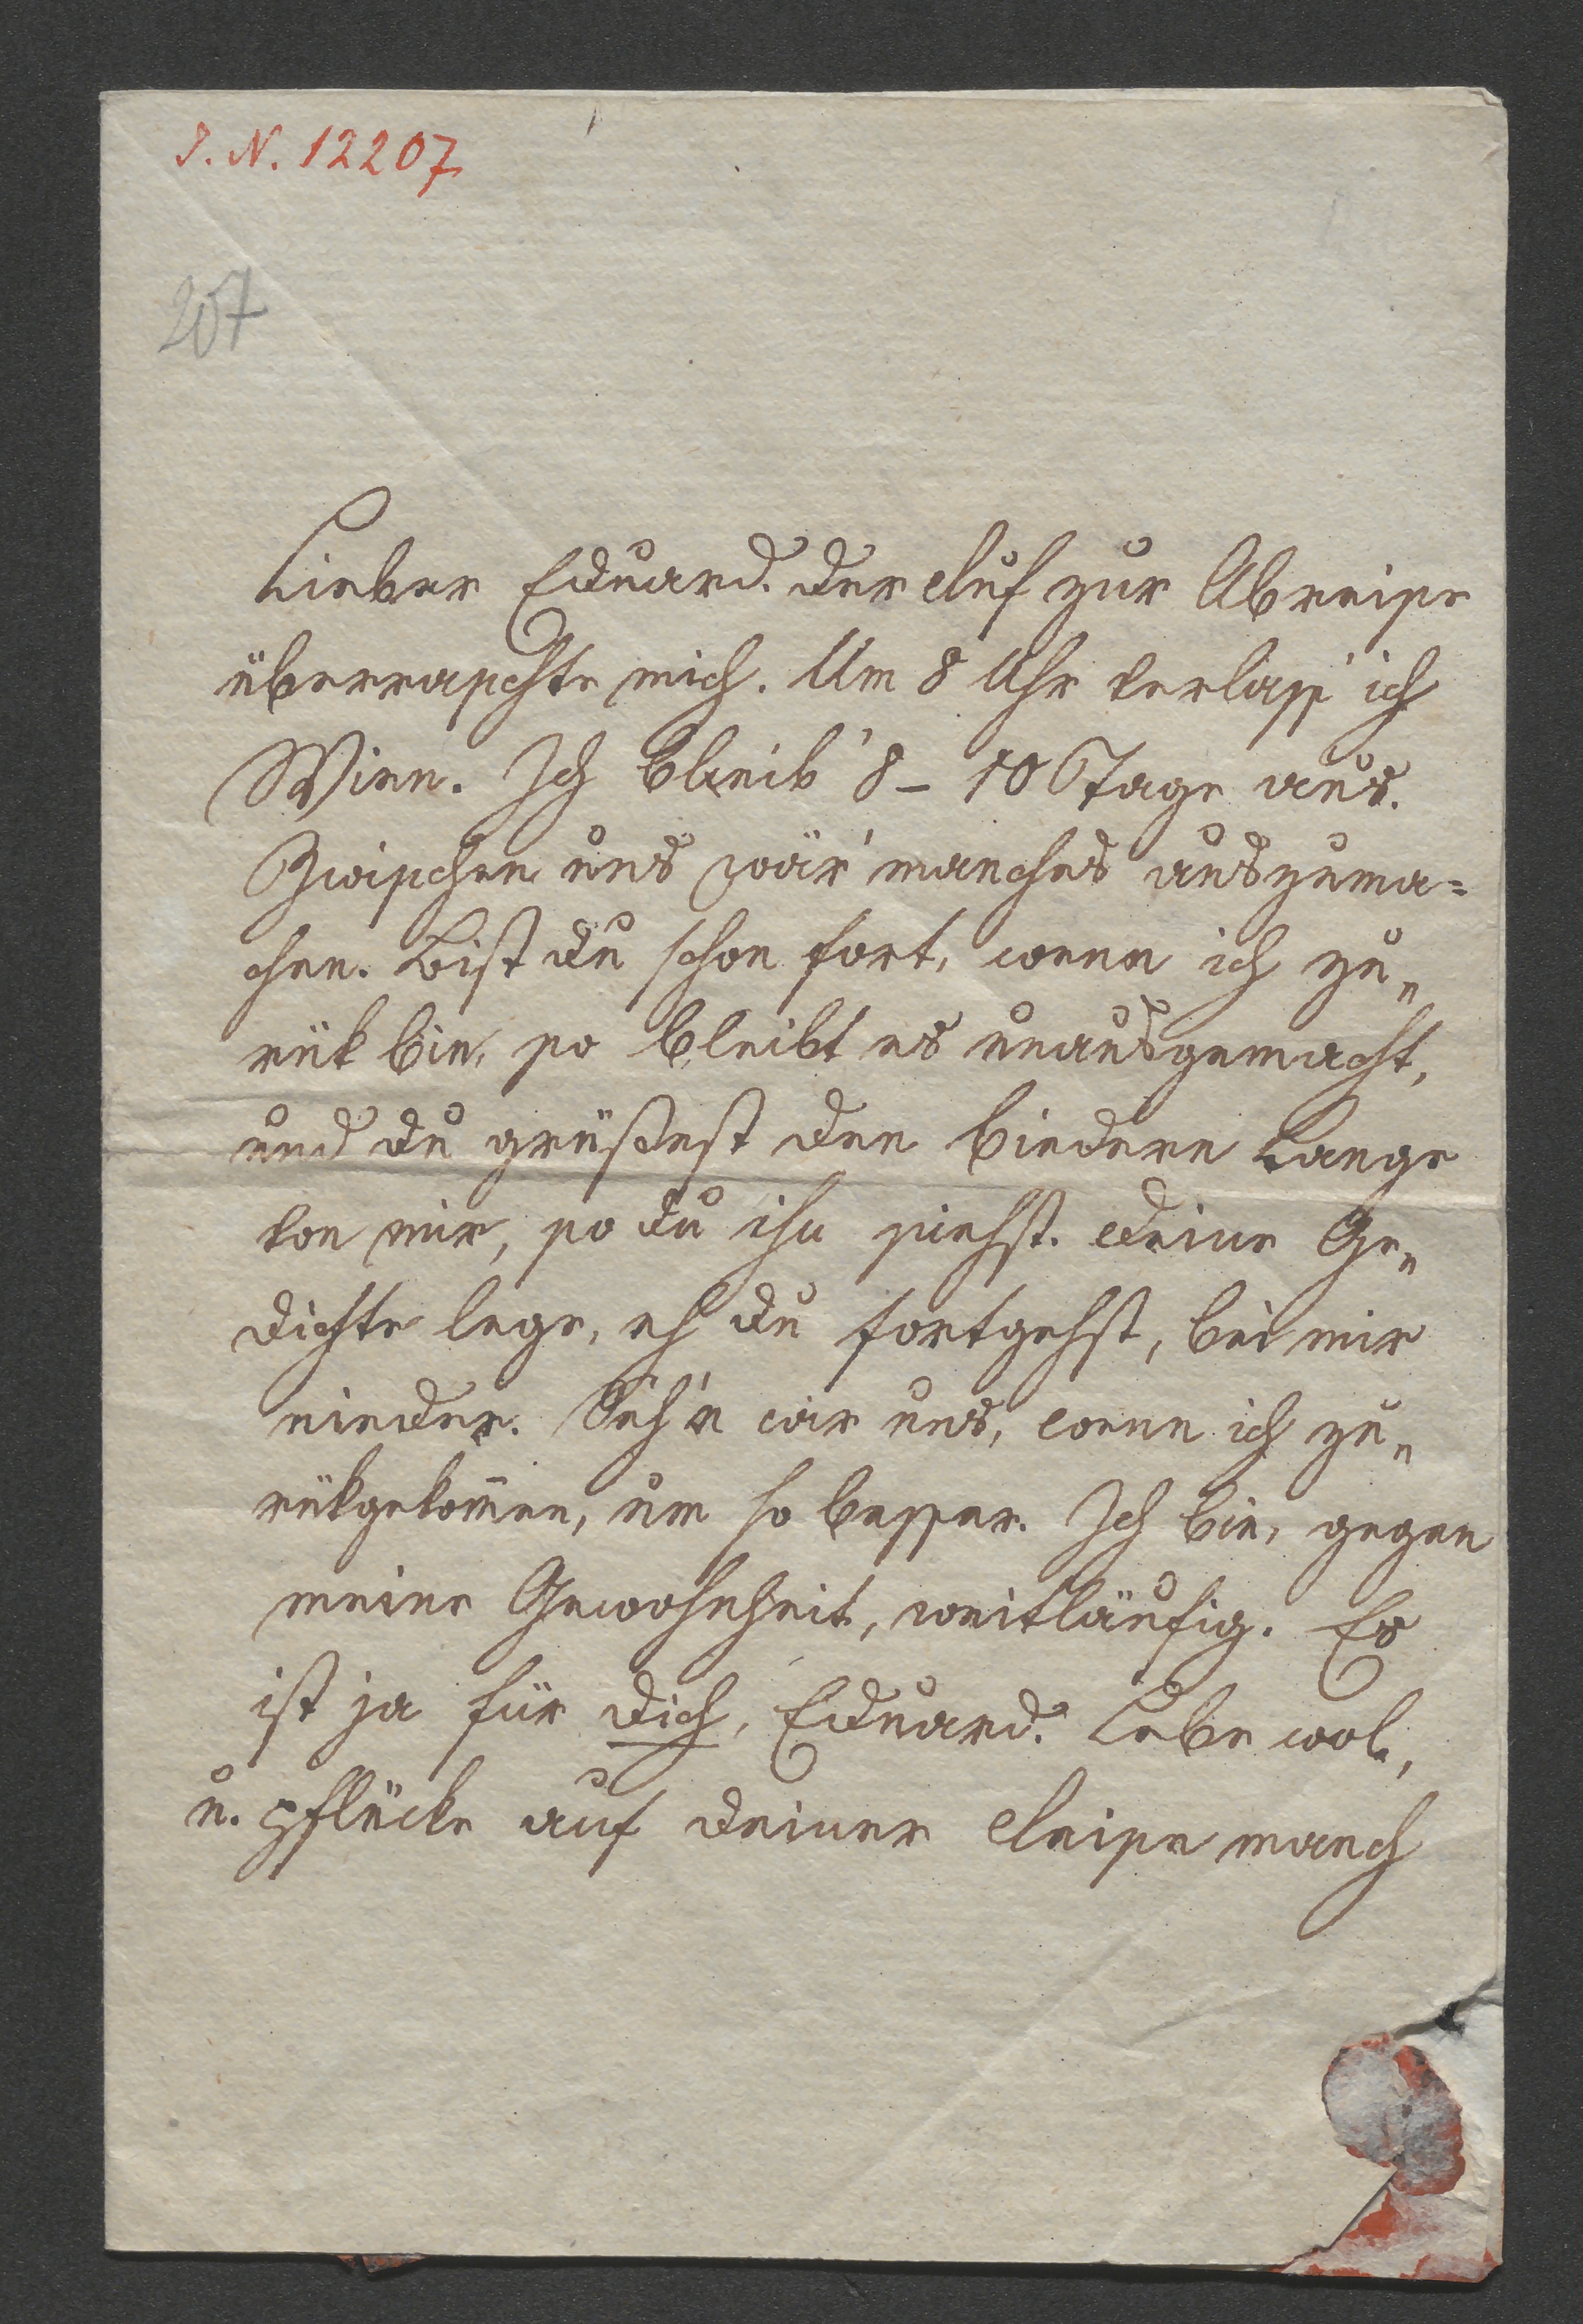 I. N. 12207
207
Lieber Eduard. Der Ruf zur Abreise
überraschte mich. Um 8 Uhr verlass' ich
Wien. Ich bleib' 8 – 10 Tage aus.
Zwischen uns wär' manches auszuma=
chen. Bist du schon fort, wenn ich zu„
rük bin, so bleibt es unausgemacht,
und du grüßest den biedern Lange
von mir, so du ihn siehst. Deine Ge„
dichte lege, eh du fortgehst, bei mir
nieder. Seh'n wir uns, wenn ich zu„
rükgekom̅en, um so besser. Ich bin, gegen
meine Gewohnheit, weitläufig. Es
ist ja für dich, Eduard. Lebe wol,
u. pflücke auf deiner Reise manch